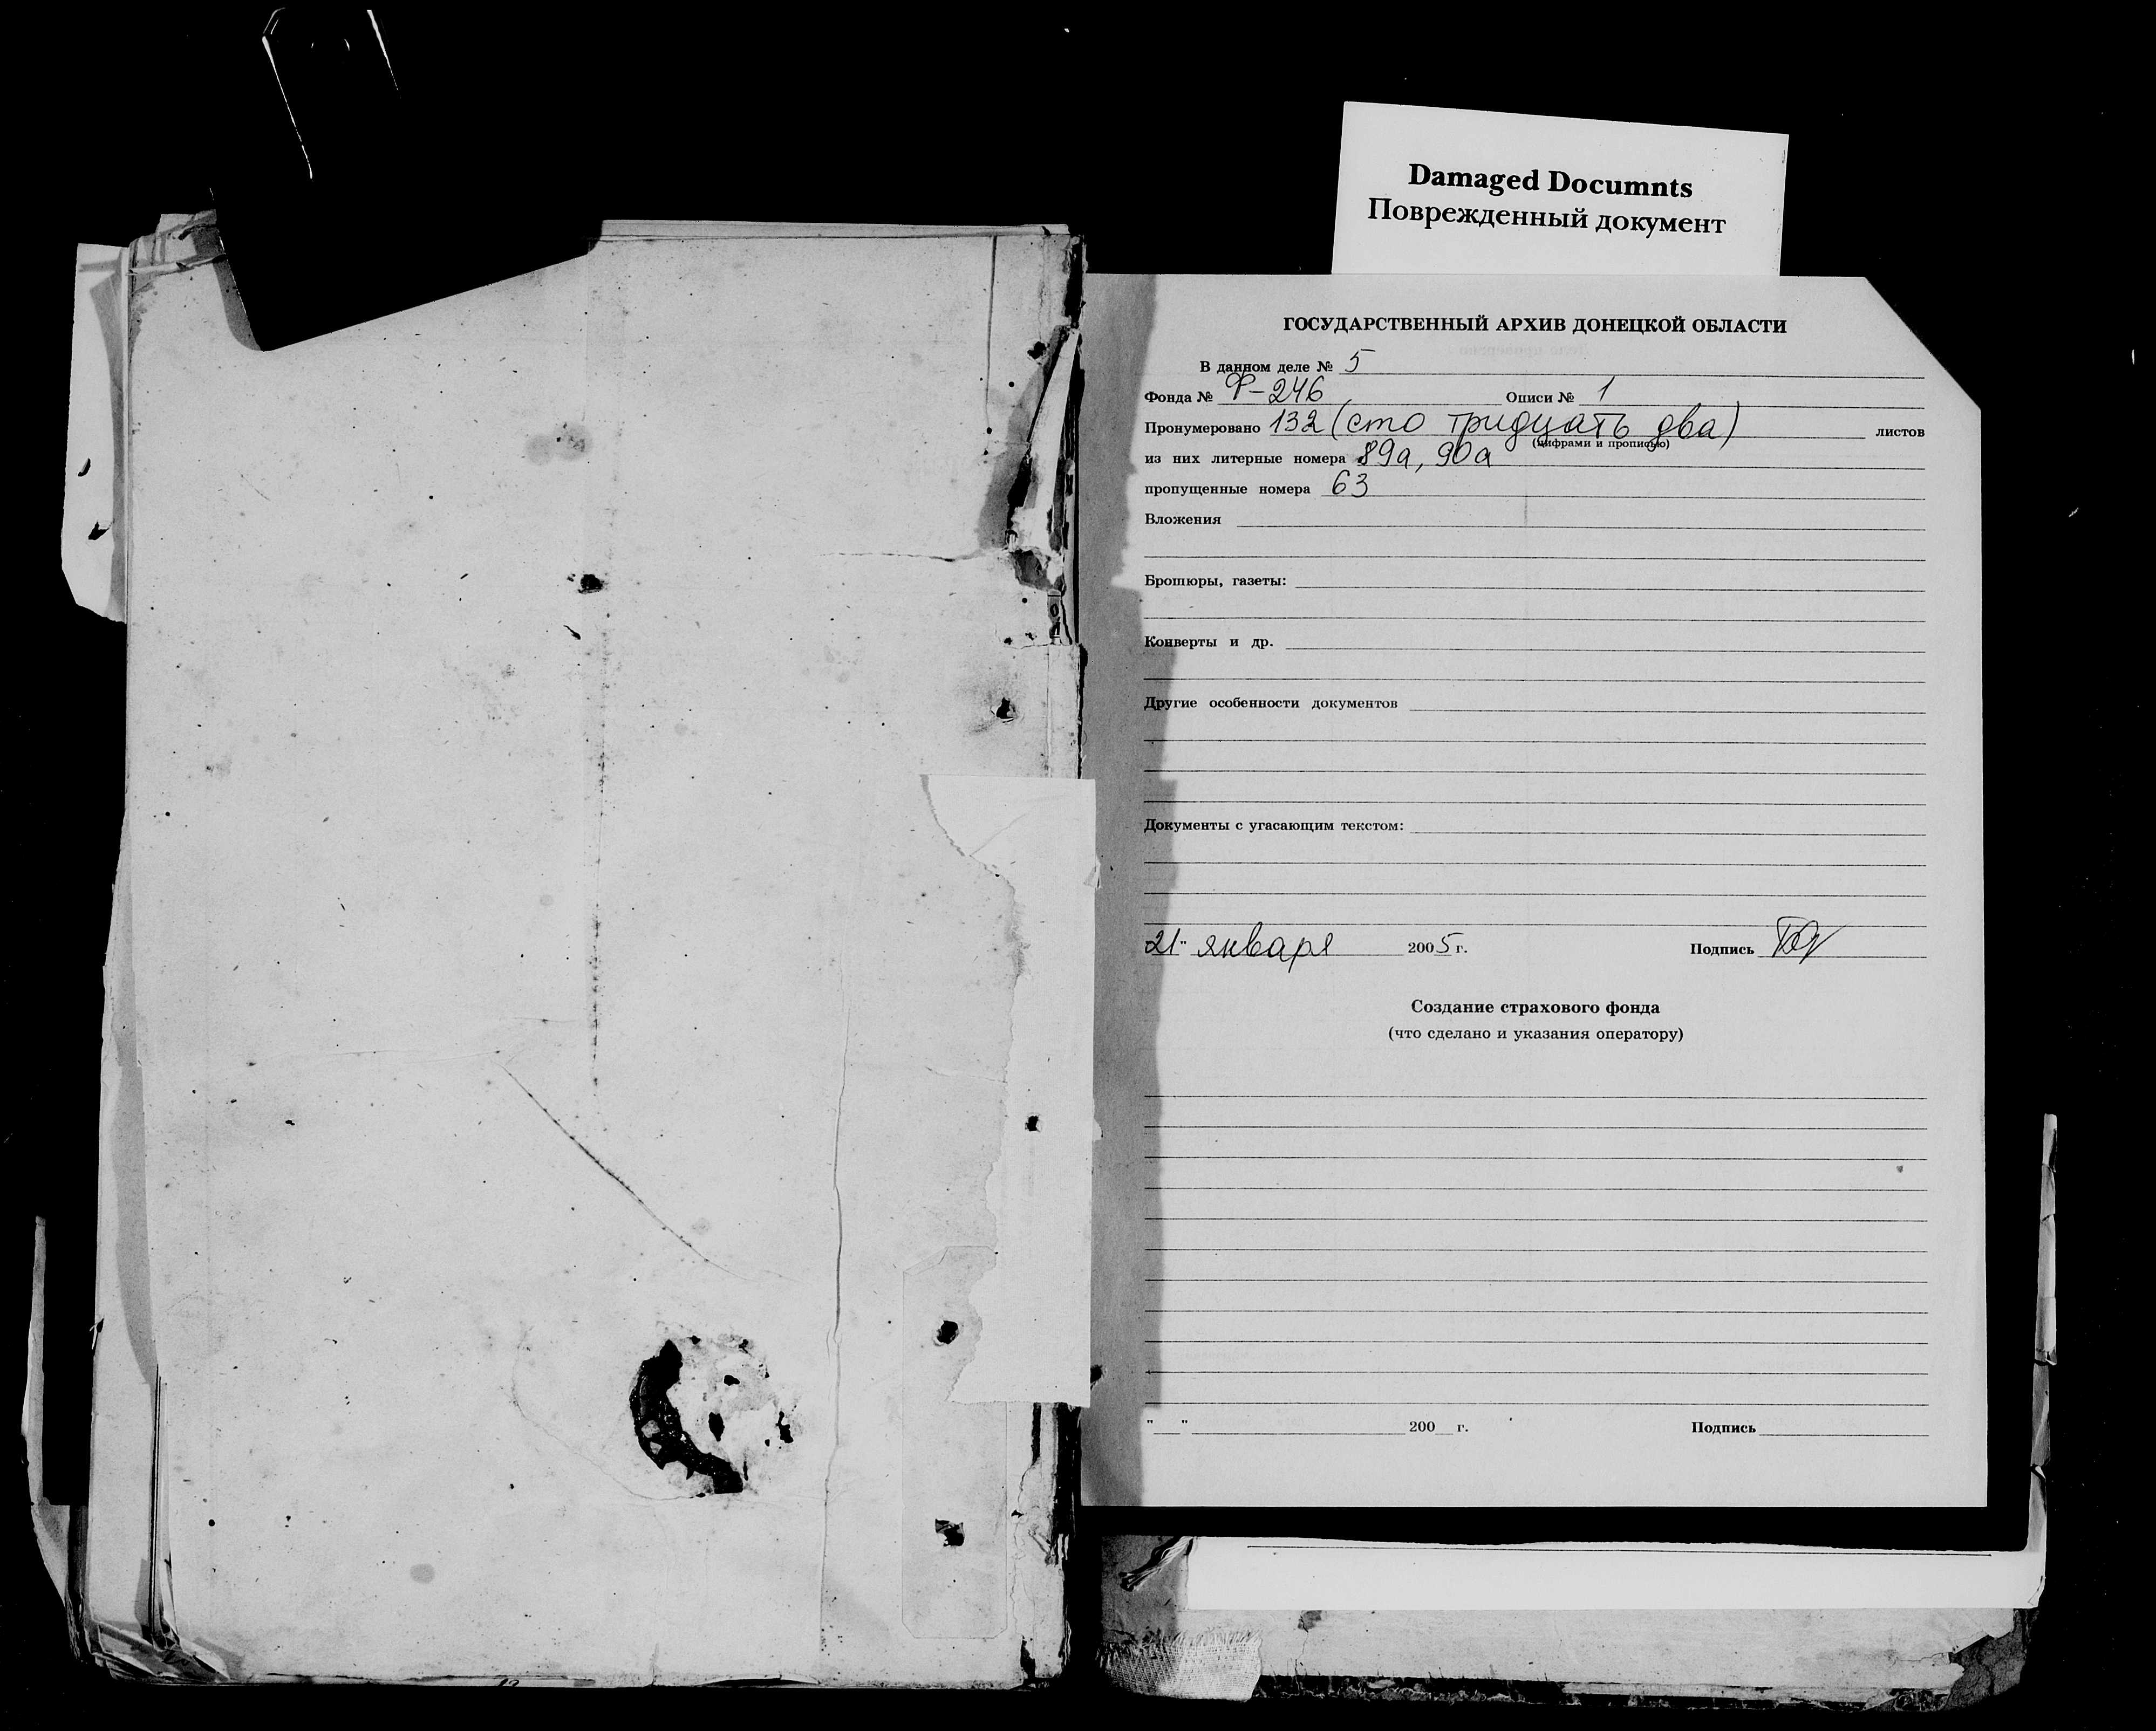 Damaged Documnts
Поврежденный документ
ГОСУДАРСТВЕННЫЙ АРХИВ ДОНЕЦКОЙ ОБЛАСТИ
В данном деле № 5
Фонда № Ф-246 Описи № 1
Пронумеровано 132 (сто тридцать два) листов
(цифрами и прописью)
из них литерные номера 89а, 90а
пропущенные номера 63
Вложения
Брошюры, газеты:
Конверты и др.
Другие особенности документов
Документы с угасающим текстом:
21" января 2005 г. Подпись
Создание страхового фонда
(что сделано и указания оператору)
"__" 200 г. Подпись